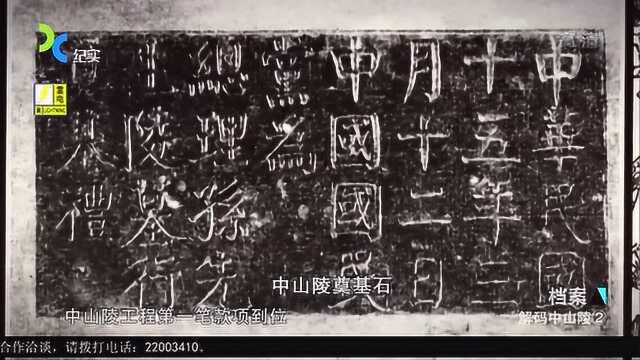 纪实
雷电
LIGHTNING
中華民國
十五年三
月十二日
中國國民
黨為
總理孫先
生陵墓行
奠基禮
中山陵奠基石
中山陵工程第一笔款项到位
档案
解码中山陵②
合作洽谈，请拨打电话：22003410。